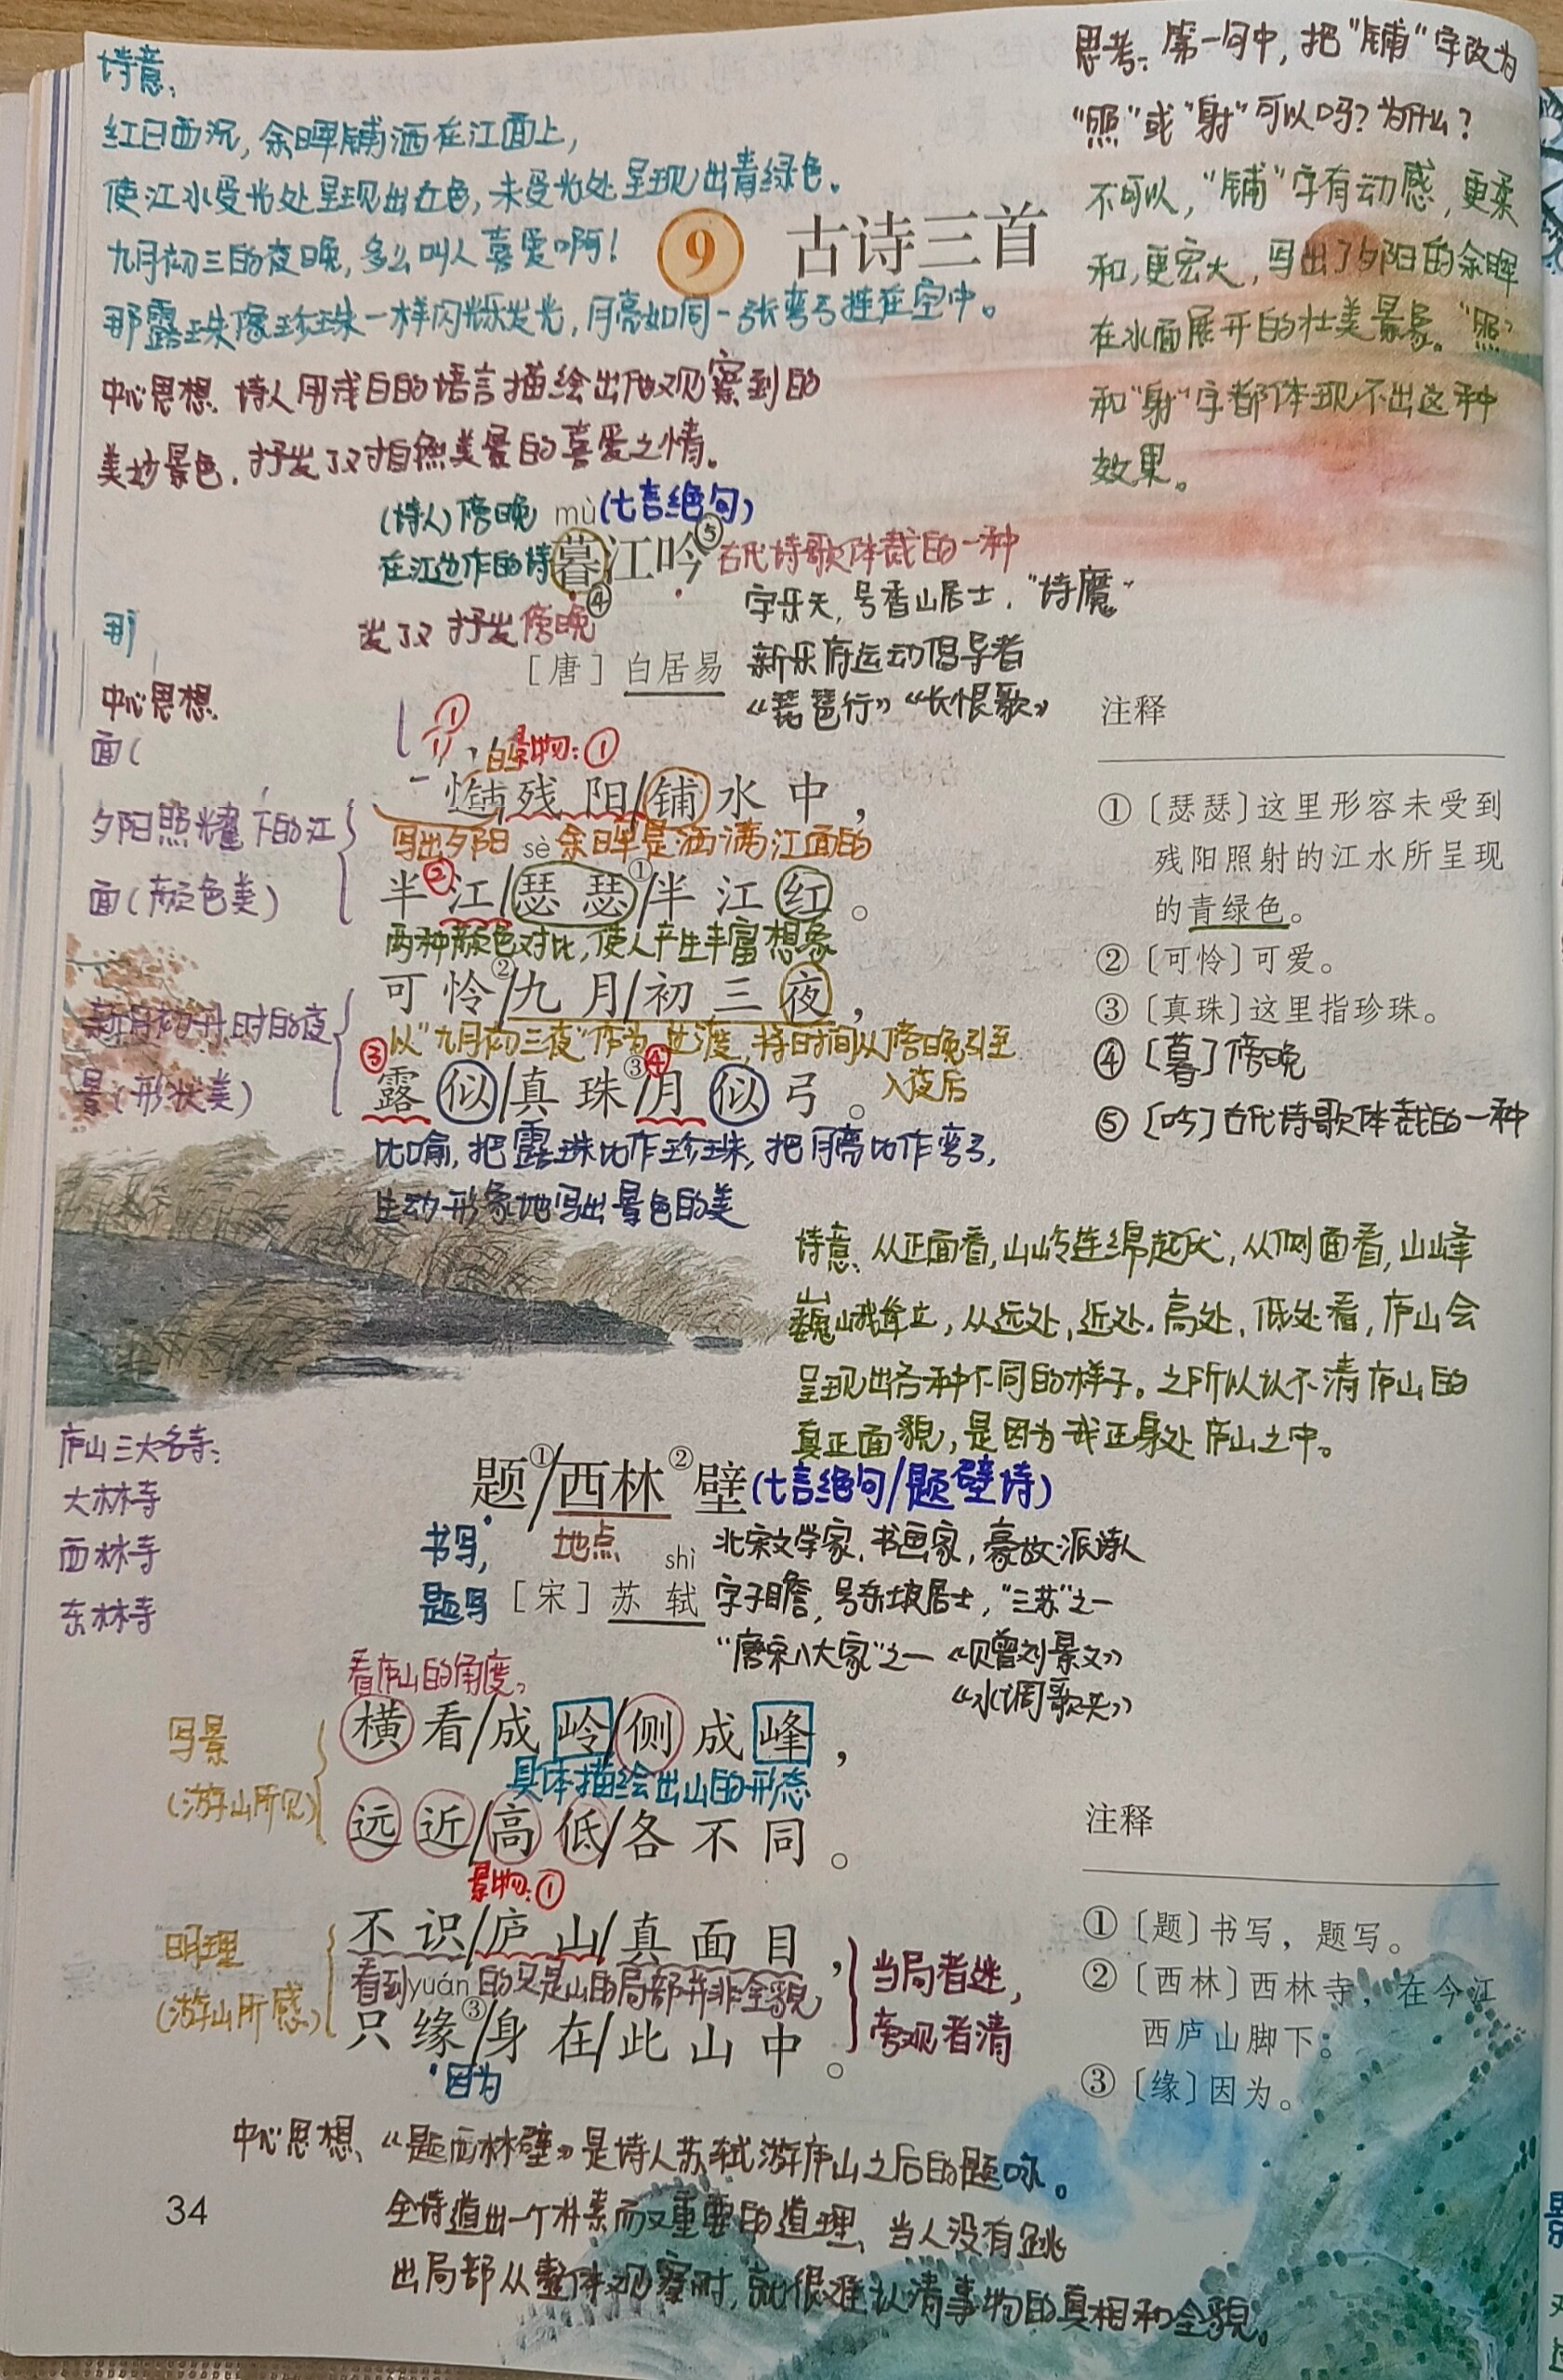 诗意:
红日西沉，余晖铺洒在江面上，
使江水受光处呈现出红色，未受光处呈现出青绿色。
九月初三的夜晚，多么叫人喜爱啊！
那露珠像珍珠一样闪烁发光，月亮如同一张弯弓挂在空中。
中心思想：诗人用浅白的语言描绘出他观察到的
美妙景色，抒发了对自然美景的喜爱之情。
思考：第一句中，把“铺”字改为
“照”或“射”可以吗？为什么？
不可以，“铺”字有动感，更柔
和，更宏大，写出了夕阳的余晖
在水面展开的壮美景象。“照”
和“射”字都体现不出这种
效果。
9 古诗三首
(诗人)傍晚 mù (七言绝句)
在江边作的诗 暮江吟⑤ 古代诗歌体裁的一种
④
发了对 抒发 傍晚
那
字乐天，号香山居士，“诗魔”
［唐］白居易 新乐府运动倡导者
《琵琶行》《长恨歌》
中心思想
面(
①
景物：①
一道残阳/铺水中，
写出夕阳 sè 余晖是洒满江面的
夕阳照耀下的江
面(颜色美)
②
半江/瑟瑟①/半江红。
两种颜色对比，使人产生丰富想象
可怜②/九月/初三夜，
以“九月初三夜”作为过渡，将时间从傍晚引至
入夜后
新月初升时的夜
景(形状美)
③ ④
露似/真珠③/月似弓。
比喻，把露珠比作珍珠，把月亮比作弯弓，
生动形象地写出景色的美
注释
①〔瑟瑟〕这里形容未受到
残阳照射的江水所呈现
的青绿色。
②〔可怜〕可爱。
③〔真珠〕这里指珍珠。
④〔暮〕傍晚
⑤〔吟〕古代诗歌体裁的一种
诗意：从正面看，山岭连绵起伏，从侧面看，山峰
巍峨耸立，从远处、近处、高处、低处看，庐山会
呈现出各种不同的样子。之所以认不清庐山的
真正面貌，是因为我正身处庐山之中。
庐山三大名寺：
大林寺
西林寺
东林寺
题①/西林②壁 (七言绝句/题壁诗)
书写，
题写
地点
shì
北宋文学家、书画家，豪放派诗人
［宋］苏轼 字子瞻，号东坡居士，“三苏”之一
“唐宋八大家”之一 《赠刘景文》
《水调歌头》
看庐山的角度，
横看/成岭/侧成峰，
具体描绘出山的形态
远近/高低/各不同。
写景
(游山所见)
景物：①
不识/庐山/真面目，
看到 yuán 的只是山的局部并非全貌
只缘③/身在/此山中。
因为
明理
(游山所感)
当局者迷，
旁观者清
注释
①〔题〕书写，题写。
②〔西林〕西林寺，在今江
西庐山脚下。
③〔缘〕因为。
中心思想：《题西林壁》是诗人苏轼游庐山之后的题咏。
全诗道出一个朴素而又重要的道理：当人没有跳
出局部从整体观察时，就很难认清事物的真相和全貌。
34